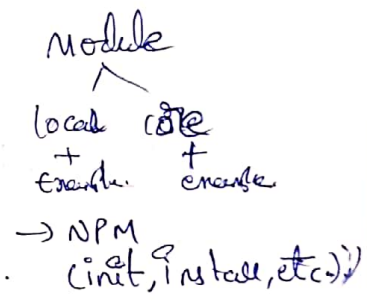 Module
local core
+ +
Example. example.
→ NPM
(init, install, etc.)